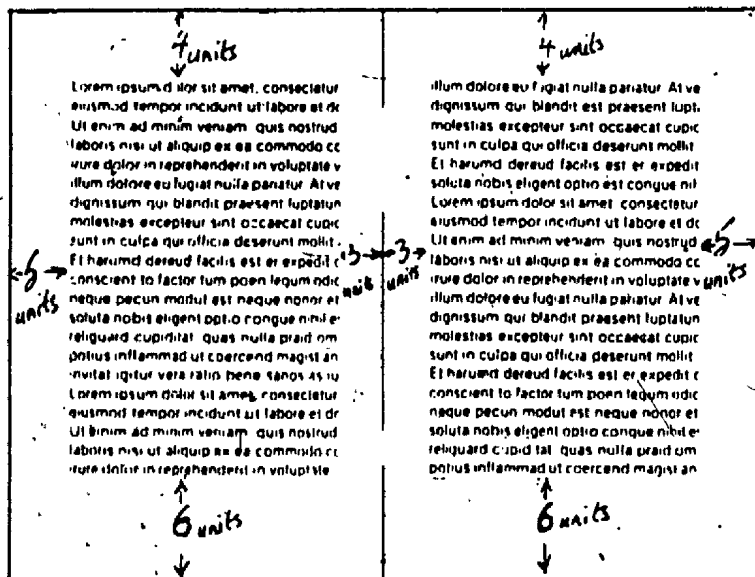 4 units
Lorem ipsum d lor sit amet, consectetur
eiusmod tempor incidunt ut labore et dc
Ut enim ad minim veniam quis nostrud
laboris nisi ut aliquip ex ea commodo cc
irure dolor in reprehenderit in voluptate v
illum dolore eu fugiat nulla pariatur. At ve
dignissum qui blandit praesent luptatun
molestias excepteur sint occaecat cupic
sunt in culpa qui officia deserunt mollit
Et harumd dereud facilis est er expedit c
conscient to factor tum poen legum odic
neque pecun modut est neque nonor et
soluta nobis eligent optio congue nihil e
religuard cupiditat quas nulla praid om
potius inflammad ut coercend magist an
invitat igitur vera ratio bene sanos as iu
Lorem ipsum dolor sit amet, consectetur
eiusmod tempor incidunt ut labore et dr
Ut enim ad minim veniam quis nostrud
laboris nisi ut aliquip ex ea commodo cc
irure dolor in reprehenderit in voluptate
5 units
3 unit
6 units
4 units
illum dolore eu fugiat nulla pariatur At ve
dignissum qui blandit est praesent lupt
molestias excepteur sint occaecat cupic
sunt in culpa qui officia deserunt mollit
Et harumd dereud facilis est er expedit
soluta nobis eligent optio est congue nil
Lorem ipsum dolor sit amet consectetur
eiusmod tempor incidunt ut labore et dc
Ut enim ad minim veniam quis nostrud
laboris nisi ut aliquip ex ea commodo cc
irure dolor in reprehenderit in voluptate v
illum dolore eu fugiat nulla pariatur At ve
dignissum qui blandit praesent luptatun
molestias excepteur sint occaecat cupic
sunt in culpa qui officia deserunt mollit
Et harumd dereud facilis est er expedit c
conscient to factor tum poen legum odic
neque pecun modut est neque nonor et
soluta nobis eligent optio congue nihil e
religuard cupid tat quas nulla praid om
potius inflammad ut coercend magist an
3 units
5 units
6 units